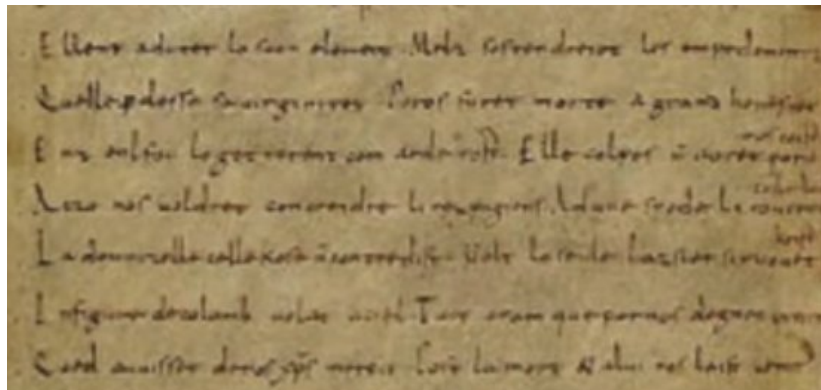 Ellent adunet lo suon element Melz sostendreiet les empedementz
Quelle pdesse sa uirginitet Poros furet morte a grand honestet
Enz enl fou lo getterent com arde tost Elle colpes ñ auret poro
nos coist
A czo nos uoldret concreidre li rex pagiens Ad une spede li roueret
La domnizelle celle kose ñ contredist Uolt lo seule lazsier si ruouet
krist
In figure de colomb uolat a ciel Tuit oram que por nos degnet
Qued auuisset de nos xps mercit Post la mort & a lui nos laist uenir